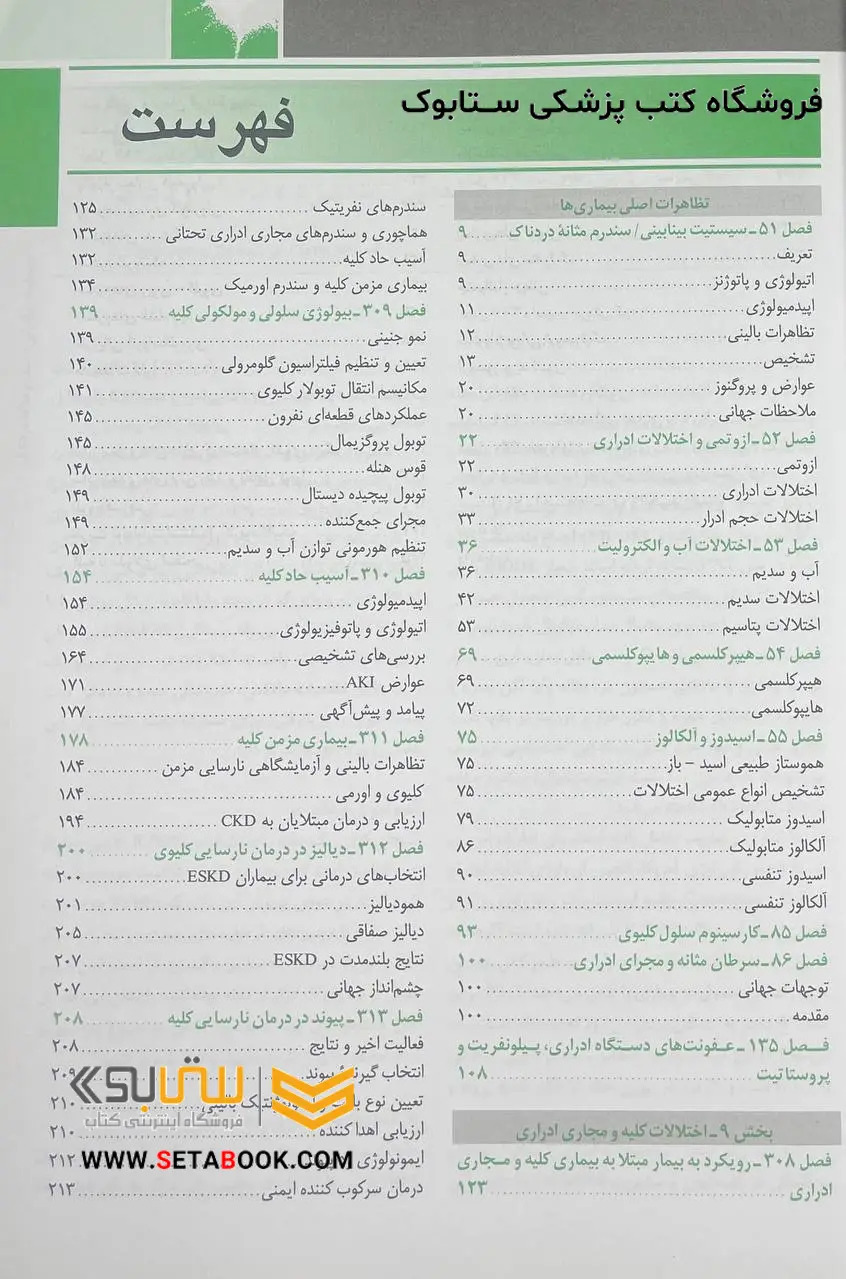 فروشگاه کتب پزشکی ستابوک
فهرست
تظاهرات اصلی بیماری‌ها
فصل ۵۱ـ سیستیت بینابینی/ سندرم مثانهٔ دردناک ......... ۹
تعریف ......... ۹
اتیولوژی و پاتوژنز ......... ۹
اپیدمیولوژی ......... ۱۱
تظاهرات بالینی ......... ۱۲
تشخیص ......... ۱۳
عوارض و پروگنوز ......... ۲۰
ملاحظات جهانی ......... ۲۰
فصل ۵۲ـ ازوتمی و اختلالات ادراری ......... ۲۲
ازوتمی ......... ۲۲
اختلالات ادراری ......... ۳۰
اختلالات حجم ادرار ......... ۳۳
فصل ۵۳ـ اختلالات آب و الکترولیت ......... ۳۶
آب و سدیم ......... ۳۶
اختلالات سدیم ......... ۴۲
اختلالات پتاسیم ......... ۵۳
فصل ۵۴ـ هیپرکلسمی و هایپوکلسمی ......... ۶۹
هیپرکلسمی ......... ۶۹
هایپوکلسمی ......... ۷۲
فصل ۵۵ـ اسیدوز و آلکالوز ......... ۷۵
هموستاز طبیعی اسید – باز ......... ۷۵
تشخیص انواع عمومی اختلالات ......... ۷۵
اسیدوز متابولیک ......... ۷۹
آلکالوز متابولیک ......... ۸۶
اسیدوز تنفسی ......... ۹۰
آلکالوز تنفسی ......... ۹۱
فصل ۸۵ـ کارسینوم سلول کلیوی ......... ۹۳
فصل ۸۶ـ سرطان مثانه و مجرای ادراری ......... ۱۰۰
توجهات جهانی ......... ۱۰۰
مقدمه ......... ۱۰۰
فصل ۱۳۵ـ عفونت‌های دستگاه ادراری، پیلونفریت و
پروستاتیت ......... ۱۰۸
بخش ۹ـ اختلالات کلیه و مجاری ادراری
فصل ۳۰۸ـ رویکرد به بیمار مبتلا به بیماری کلیه و مجاری
ادراری ......... ۱۲۳
سندرم‌های نفریتیک ......... ۱۲۵
هماچوری و سندرم‌های مجاری ادراری تحتانی ......... ۱۳۲
آسیب حاد کلیه ......... ۱۳۲
بیماری مزمن کلیه و سندرم اورمیک ......... ۱۳۴
فصل ۳۰۹ـ بیولوژی سلولی و مولکولی کلیه ......... ۱۳۹
نمو جنینی ......... ۱۳۹
تعیین و تنظیم فیلتراسیون گلومرولی ......... ۱۴۰
مکانیسم انتقال توبولار کلیوی ......... ۱۴۱
عملکردهای قطعه‌ای نفرون ......... ۱۴۵
توبول پروگزیمال ......... ۱۴۵
قوس هنله ......... ۱۴۸
توبول پیچیده دیستال ......... ۱۴۹
مجرای جمع‌کننده ......... ۱۴۹
تنظیم هورمونی توازن آب و سدیم ......... ۱۵۲
فصل ۳۱۰ـ آسیب حاد کلیه ......... ۱۵۴
اپیدمیولوژی ......... ۱۵۴
اتیولوژی و پاتوفیزیولوژی ......... ۱۵۵
بررسی‌های تشخیصی ......... ۱۶۴
عوارض AKI ......... ۱۷۱
پیامد و پیش‌آگهی ......... ۱۷۷
فصل ۳۱۱ـ بیماری مزمن کلیه ......... ۱۷۸
تظاهرات بالینی و آزمایشگاهی نارسایی مزمن ......... ۱۸۴
کلیوی و اورمی ......... ۱۸۴
ارزیابی و درمان مبتلایان به CKD ......... ۱۹۴
فصل ۳۱۲ـ دیالیز در درمان نارسایی کلیوی ......... ۲۰۰
انتخاب‌های درمانی برای بیماران ESKD ......... ۲۰۰
همودیالیز ......... ۲۰۱
دیالیز صفاقی ......... ۲۰۵
نتایج بلندمدت در ESKD ......... ۲۰۷
چشم‌انداز جهانی ......... ۲۰۷
فصل ۳۱۳ـ پیوند در درمان نارسایی کلیه ......... ۲۰۸
فعالیت اخیر و نتایج ......... ۲۰۸
انتخاب گیرندهٔ پیوند ......... ۲۰۹
تعیین نوع بالینی ......... ۲۱۰
ارزیابی اهدا کننده ......... ۲۱۰
ایمونولوژی ......... ۲۱۲
درمان سرکوب کننده ایمنی ......... ۲۱۳
ستابوک
فروشگاه اینترنتی کتاب
WWW.SETABOOK.COM